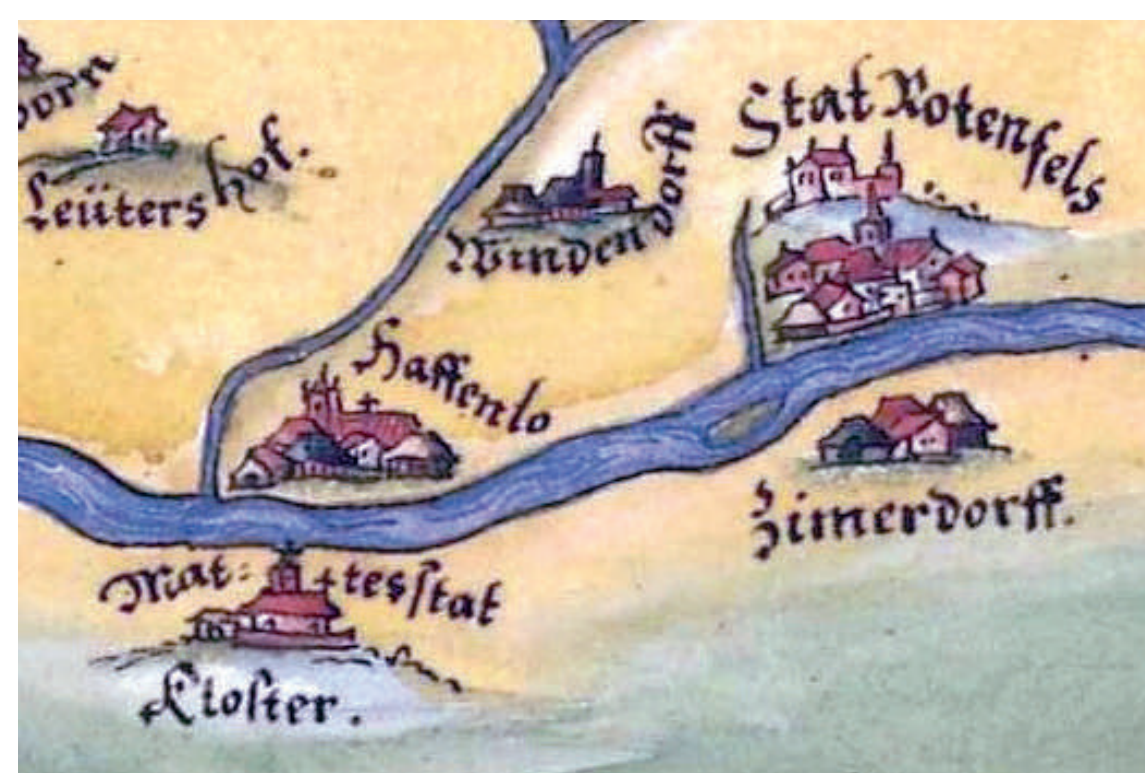 dorn
Leüters hof.
Windendorff
Stat Rotenfels
Haffenlo
Zimerdorff.
Mat-tesstat
Kloster.